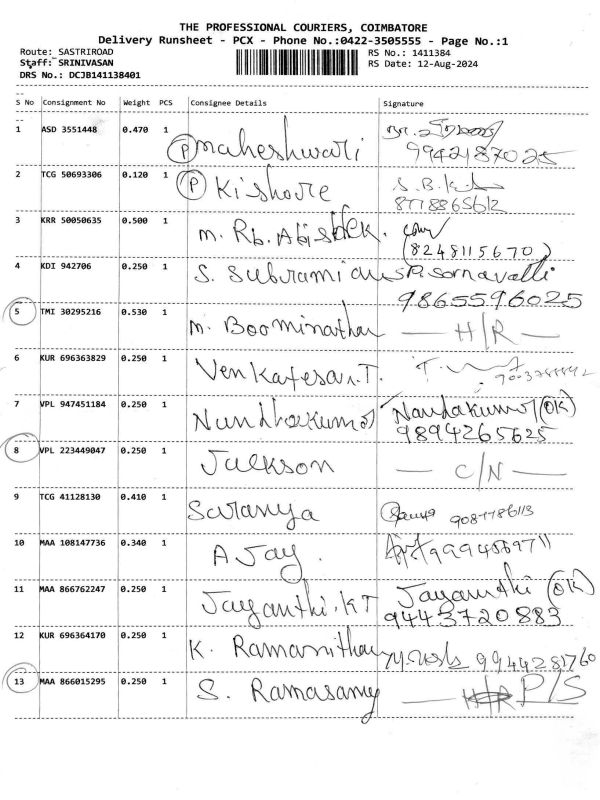 THE PROFESSIONAL COURIERS, COIMBATORE
Delivery Runsheet - PCX - Phone No.:0422-3505555 - Page No.:1
Route: SASTRIROAD
Staff: SRINIVASAN
DRS No.: DCJB141138401
RS No.: 1411384
RS Date: 12-Aug-2024
S No Consignment No Weight PCS Consignee Details Signature
1 ASD 3551448 0.470 1 (P) Maheshwari
9942187025
2 TCG 50693306 0.120 1 (P) Kishore S.B.
8778865612
3 KRR 50050635 0.500 1 M. Rb. Abishek.
(8248115670)
4 KDI 942706 0.250 1 S. Subramian S.P. Sornavalli
9865596025
5 TMI 30295216 0.530 1 M. Boominathan — H/R —
6 KUR 696363829 0.250 1 Venkatesan.T.
7 VPL 947451184 0.250 1 Nundhakumar Nandakumar (OK)
9894265625
8 VPL 223449047 0.250 1 Jackson — C/N —
9 TCG 41128130 0.410 1 Saranya 9087786113
10 MAA 108147736 0.340 1 AJay.
11 MAA 866762247 0.250 1 Jayanthi.KT Jayanthi (OK)
9443720883
12 KUR 696364170 0.250 1 K. Ramanithan 9944281760
13 MAA 866015295 0.250 1 S. Ramasamy — P/S